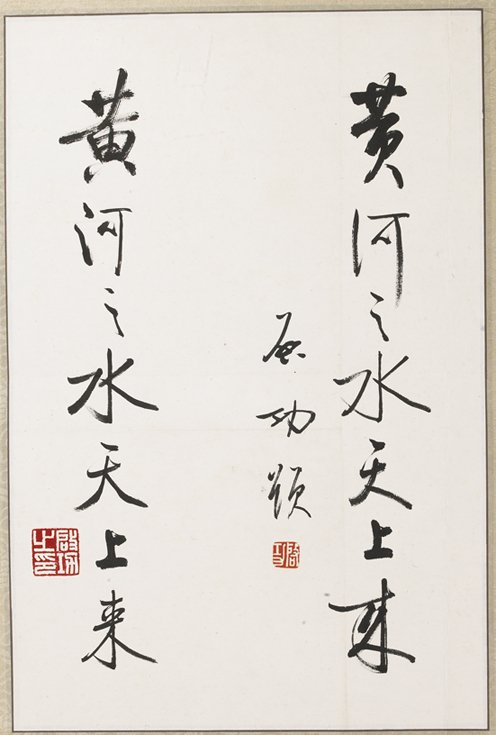 黄河之水天上来
启功题
启功
黄河之水天上来
启功之印